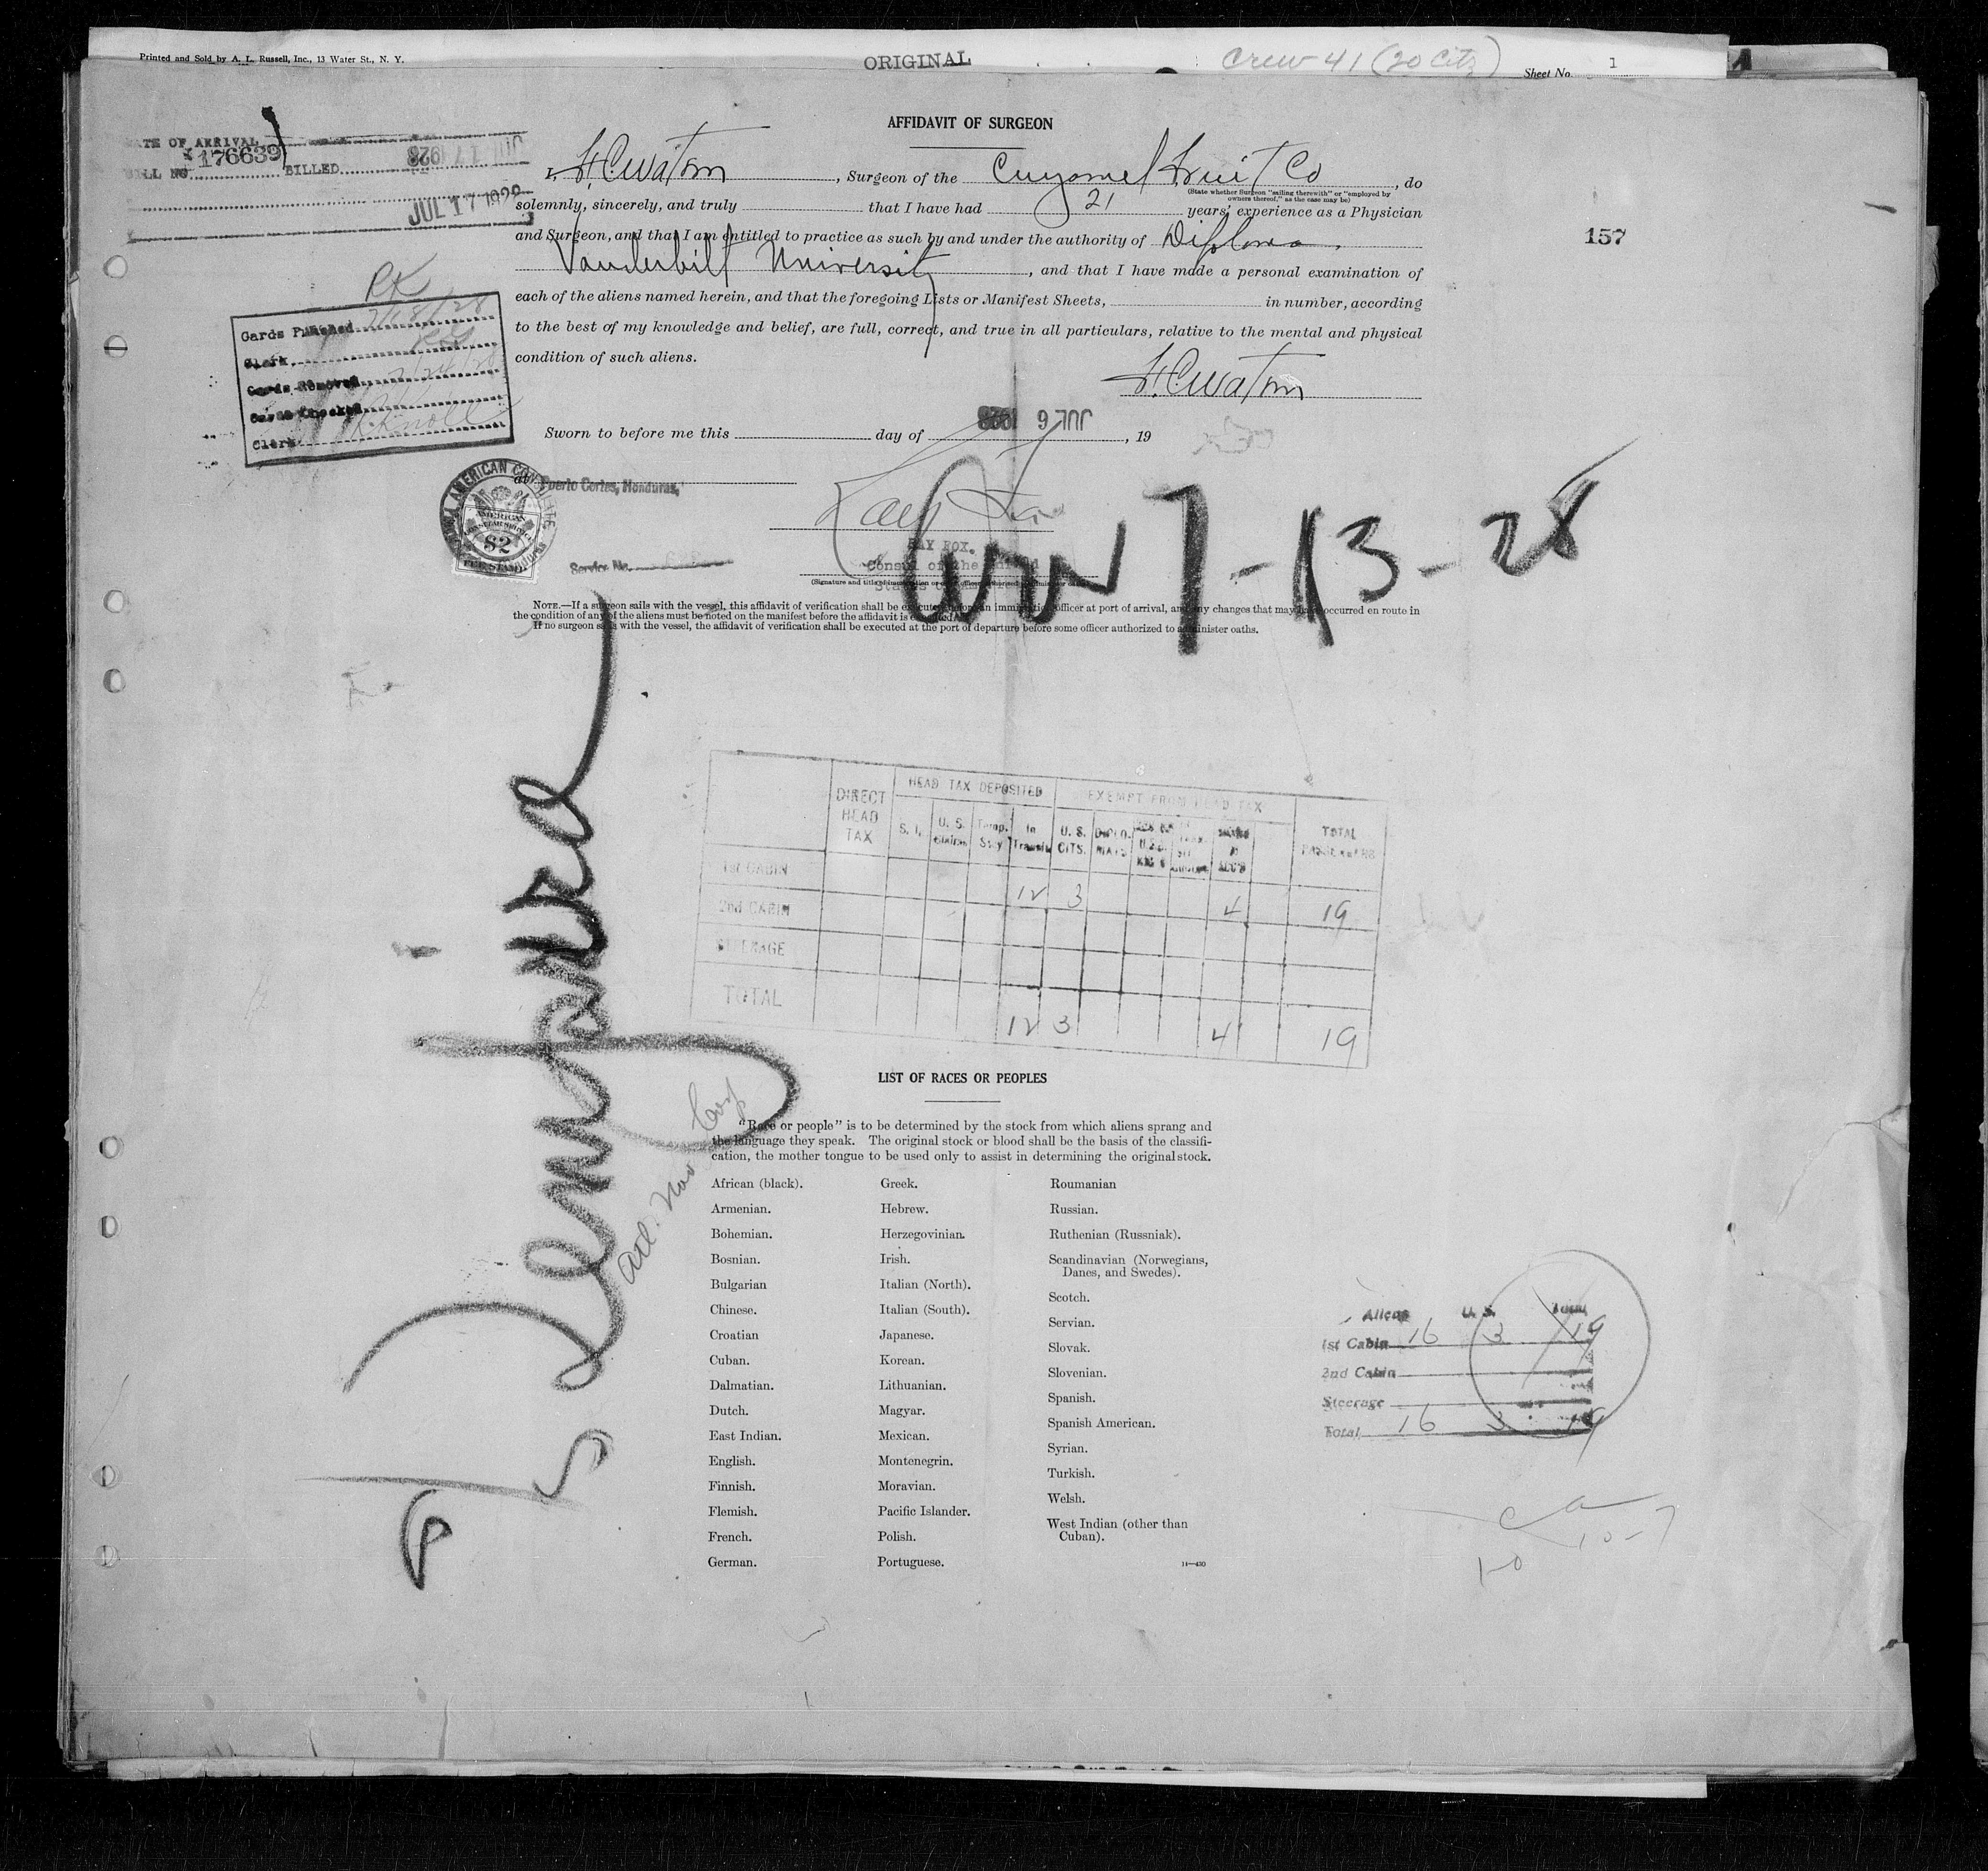 Printed and Sold by A. L. Russell, Inc., 13 Water St., N. Y.
ORIGINAL
Crew 41 (20 Citz)
Sheet No. 1
AFFIDAVIT OF SURGEON
ATE OF ARRIVAL
JUL 17 1928
LL NO. 176639 BILLED
JUL 17 1928
157
I, , Surgeon of the Cuyamel Fruit Co, do
(State whether Surgeon "sailing therewith" or "employed by
owners thereof," as the case may be)
solemnly, sincerely, and truly that I have had 21 years' experience as a Physician
and Surgeon, and that I am entitled to practice as such by and under the authority of Diploma.
Vanderbilt University, and that I have made a personal examination of
each of the aliens named herein, and that the foregoing Lists or Manifest Sheets, in number, according
to the best of my knowledge and belief, are full, correct, and true in all particulars, relative to the mental and physical
condition of such aliens.
RK
Cards Punched 7/18/28
Clerk
Cards Removed
Cards Checked
Clerk
Sworn to before me this day of JUL 6 1928, 19
at Puerto Cortes, Honduras,
AMERICAN
$2
FEE STAMP
RAY FOX.
Consul of the United
Service No.
arr 7-13-28
NOTE.—If a surgeon sails with the vessel, this affidavit of verification shall be executed before an immigration officer at port of arrival, and any changes that may have occurred en route in
the condition of any of the aliens must be noted on the manifest before the affidavit is executed.
If no surgeon sails with the vessel, the affidavit of verification shall be executed at the port of departure before some officer authorized to administer oaths.
HEAD TAX DEPOSITED EXEMPT FROM HEAD TAX
DIRECT HEAD TAX S. I. U. S. Temp. Stay In Transit U. S. CITS. DIPLO. MATS TOTAL
1st CABIN 12 3 4 19
2nd CABIN
STEERAGE
TOTAL 12 3 4 19
SS Lempira
Atl. Nav Corp
LIST OF RACES OR PEOPLES
"Race or people" is to be determined by the stock from which aliens sprang and
the language they speak. The original stock or blood shall be the basis of the classifi-
cation, the mother tongue to be used only to assist in determining the original stock.
African (black).
Armenian.
Bohemian.
Bosnian.
Bulgarian
Chinese.
Croatian
Cuban.
Dalmatian.
Dutch.
East Indian.
English.
Finnish.
Flemish.
French.
German.
Greek.
Hebrew.
Herzegovinian.
Irish.
Italian (North).
Italian (South).
Japanese.
Korean.
Lithuanian.
Magyar.
Mexican.
Montenegrin.
Moravian.
Pacific Islander.
Polish.
Portuguese.
Roumanian
Russian.
Ruthenian (Russniak).
Scandinavian (Norwegians,
Danes, and Swedes).
Scotch.
Servian.
Slovak.
Slovenian.
Spanish.
Spanish American.
Syrian.
Turkish.
Welsh.
West Indian (other than
Cuban).
Aliens U. S. Total
1st Cabin 16 3 19
2nd Cabin
Steerage
Total 16 3 19